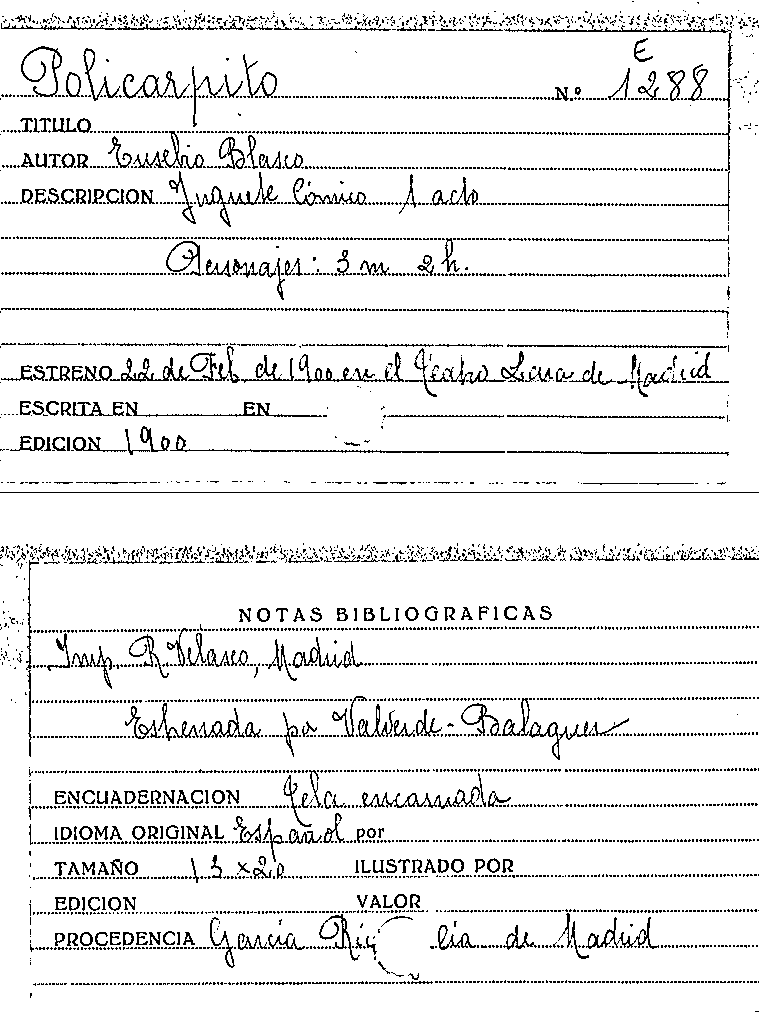 E
Policarpito N.º 1288
TITULO
AUTOR Eusebio Blasco
DESCRIPCION Juguete Cómico 1 acto
Personajes: 3 m 2 h.
ESTRENO 22 de Feb de 1900 en el Teatro Lara de Madrid
ESCRITA EN EN
EDICION 1900
NOTAS BIBLIOGRAFICAS
Imp. R. Velasco, Madrid
Estrenada por Valverde - Balaguer
ENCUADERNACION Tela encarnada
IDIOMA ORIGINAL Español por
TAMAÑO 13 x 20 ILUSTRADO POR
EDICION VALOR
PROCEDENCIA García Ri lia de Madrid